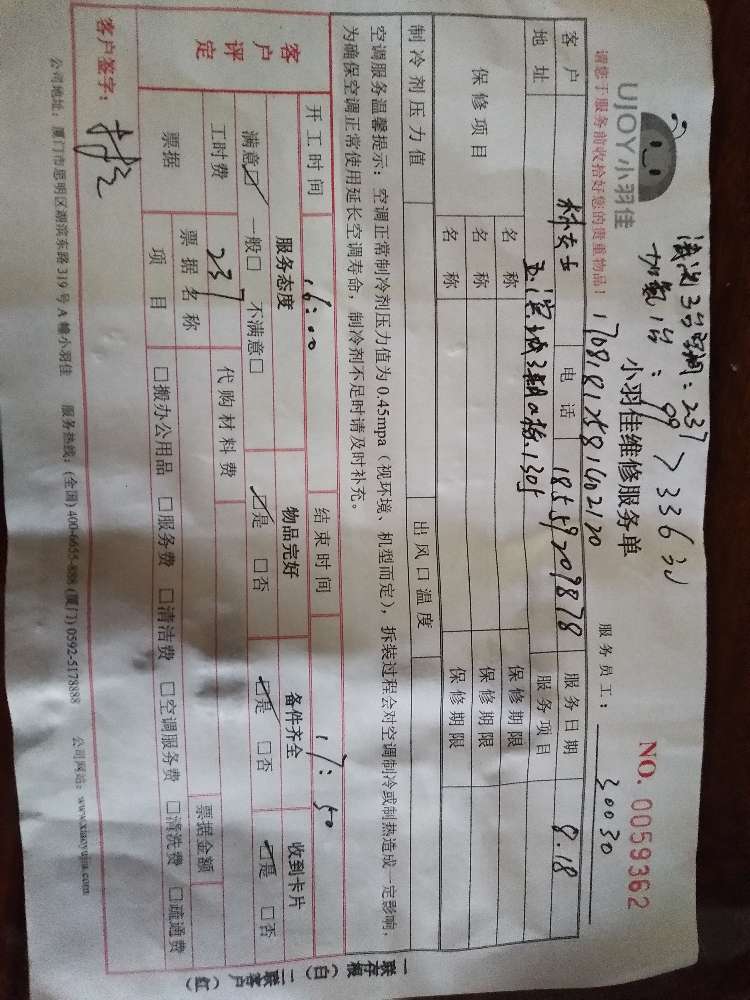 UJOY小羽佳
请您于服务前收拾好您的贵重物品！
清洗3台空调：237
加氨1台：99 > 336元
小羽佳维修服务单
NO. 0059362
服务员工：30030
客户 林女士 电话 18559209878 服务日期 8.18
地址 服务项目
保修项目 名称 保修期限
名称 保修期限
名称 保修期限
制冷剂压力值 出风口温度
空调服务温馨提示：空调正常制冷剂压力值为0.45mpa（视环境、机型而定），拆装过程会对空调制冷或制热造成一定影响，
为确保空调正常使用延长空调寿命，制冷剂不足时请及时补充。
开工时间 16:00 结束时间 17:50
客户评定 服务态度 物品完好 备件齐全 收到卡片
满意☑ 一般□ 不满意□ ☑是 □否 ☑是 □否 ☑是 □否
工时费 237 代购材料费
票据 票据名称 票据金额
项目 □搬办公用品 □服务费 □清洁费 □空调服务费 □清洗费 □疏通费
客户签字：
公司地址：厦门市思明区湖滨东路319号A幢小羽佳 服务热线：(全国) 400-6655-888 (厦门) 0592-5178888 公司网站：www.xiaoyujia.com
一联存根（白） 二联客户（红）